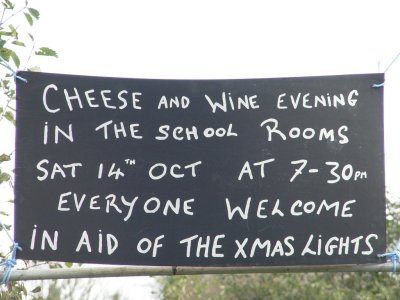 CHEESE AND WINE EVENING
IN THE SCHOOL ROOMS
SAT 14TH OCT AT 7-30PM
EVERYONE WELCOME
IN AID OF THE XMAS LIGHTS